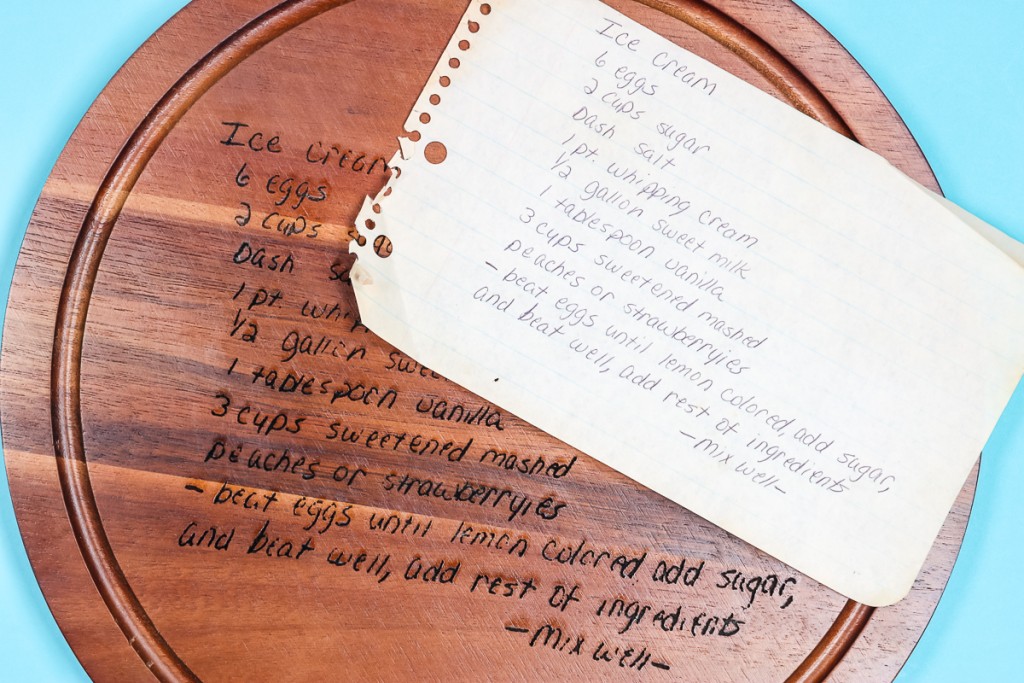 Ice cream
6 eggs
2 cups sugar
Dash salt
1 pt. whipping cream
1/2 gallon sweet milk
1 tablespoon vanilla
3 cups sweetened mashed
peaches or strawberryies
- beat eggs until lemon colored, add sugar,
and beat well, add rest of ingredients
- mix well -
Ice cream
6 eggs
2 cups
Dash sa
1 pt whi
1/2 gallon swe
1 tablespoon vanilla
3 cups sweetened mashed
peaches or strawberryies
- beat eggs until lemon colored add sugar,
and beat well, add rest of ingredients
- mix well -